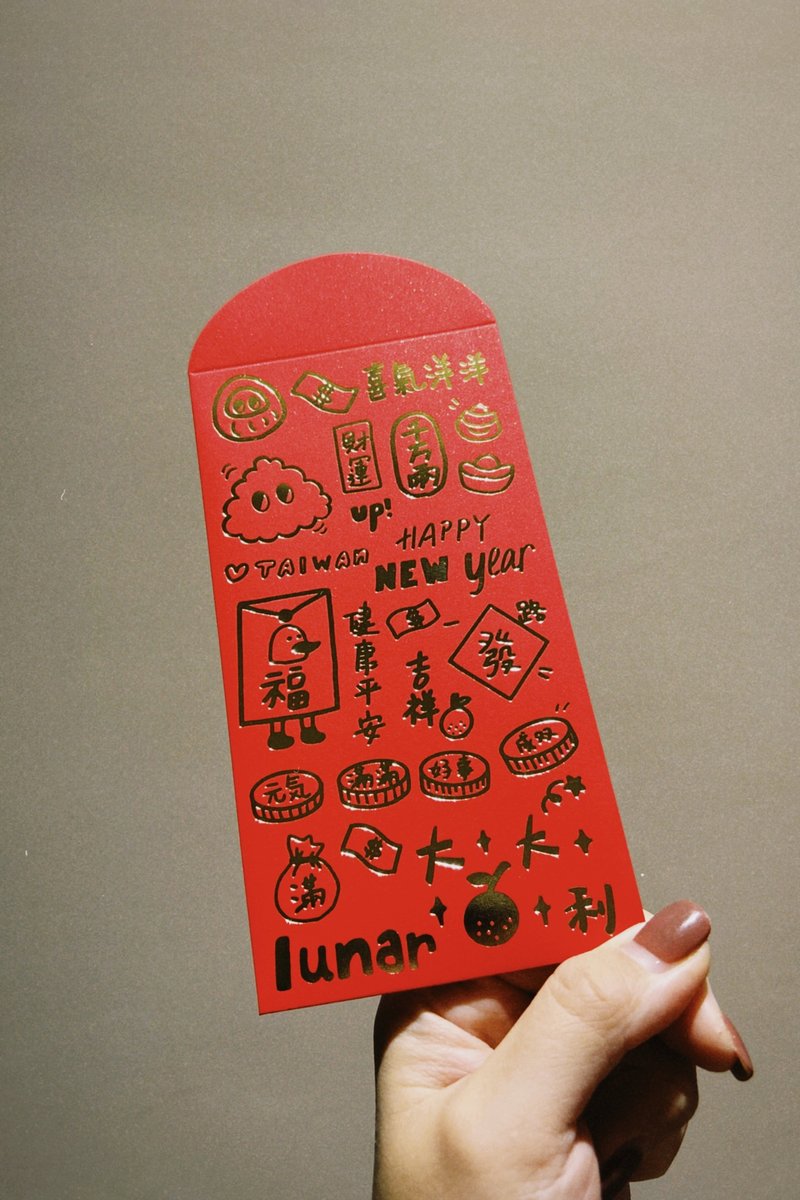 喜氣洋洋
財運
千万両
up!
♡ TAIWAN
HAPPY
NEW year
福
健康平安
吉祥
發
路
元気
滿滿
好事
成双
滿
大大
利
lunar